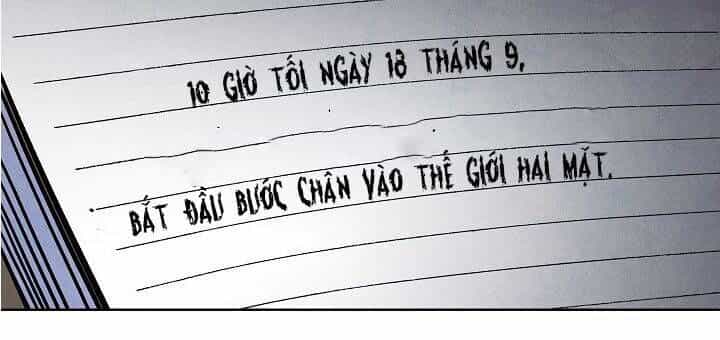 10 GIỜ TỐI NGÀY 18 THÁNG 9,
BẮT ĐẦU BƯỚC CHÂN VÀO THẾ GIỚI HAI MẶT.